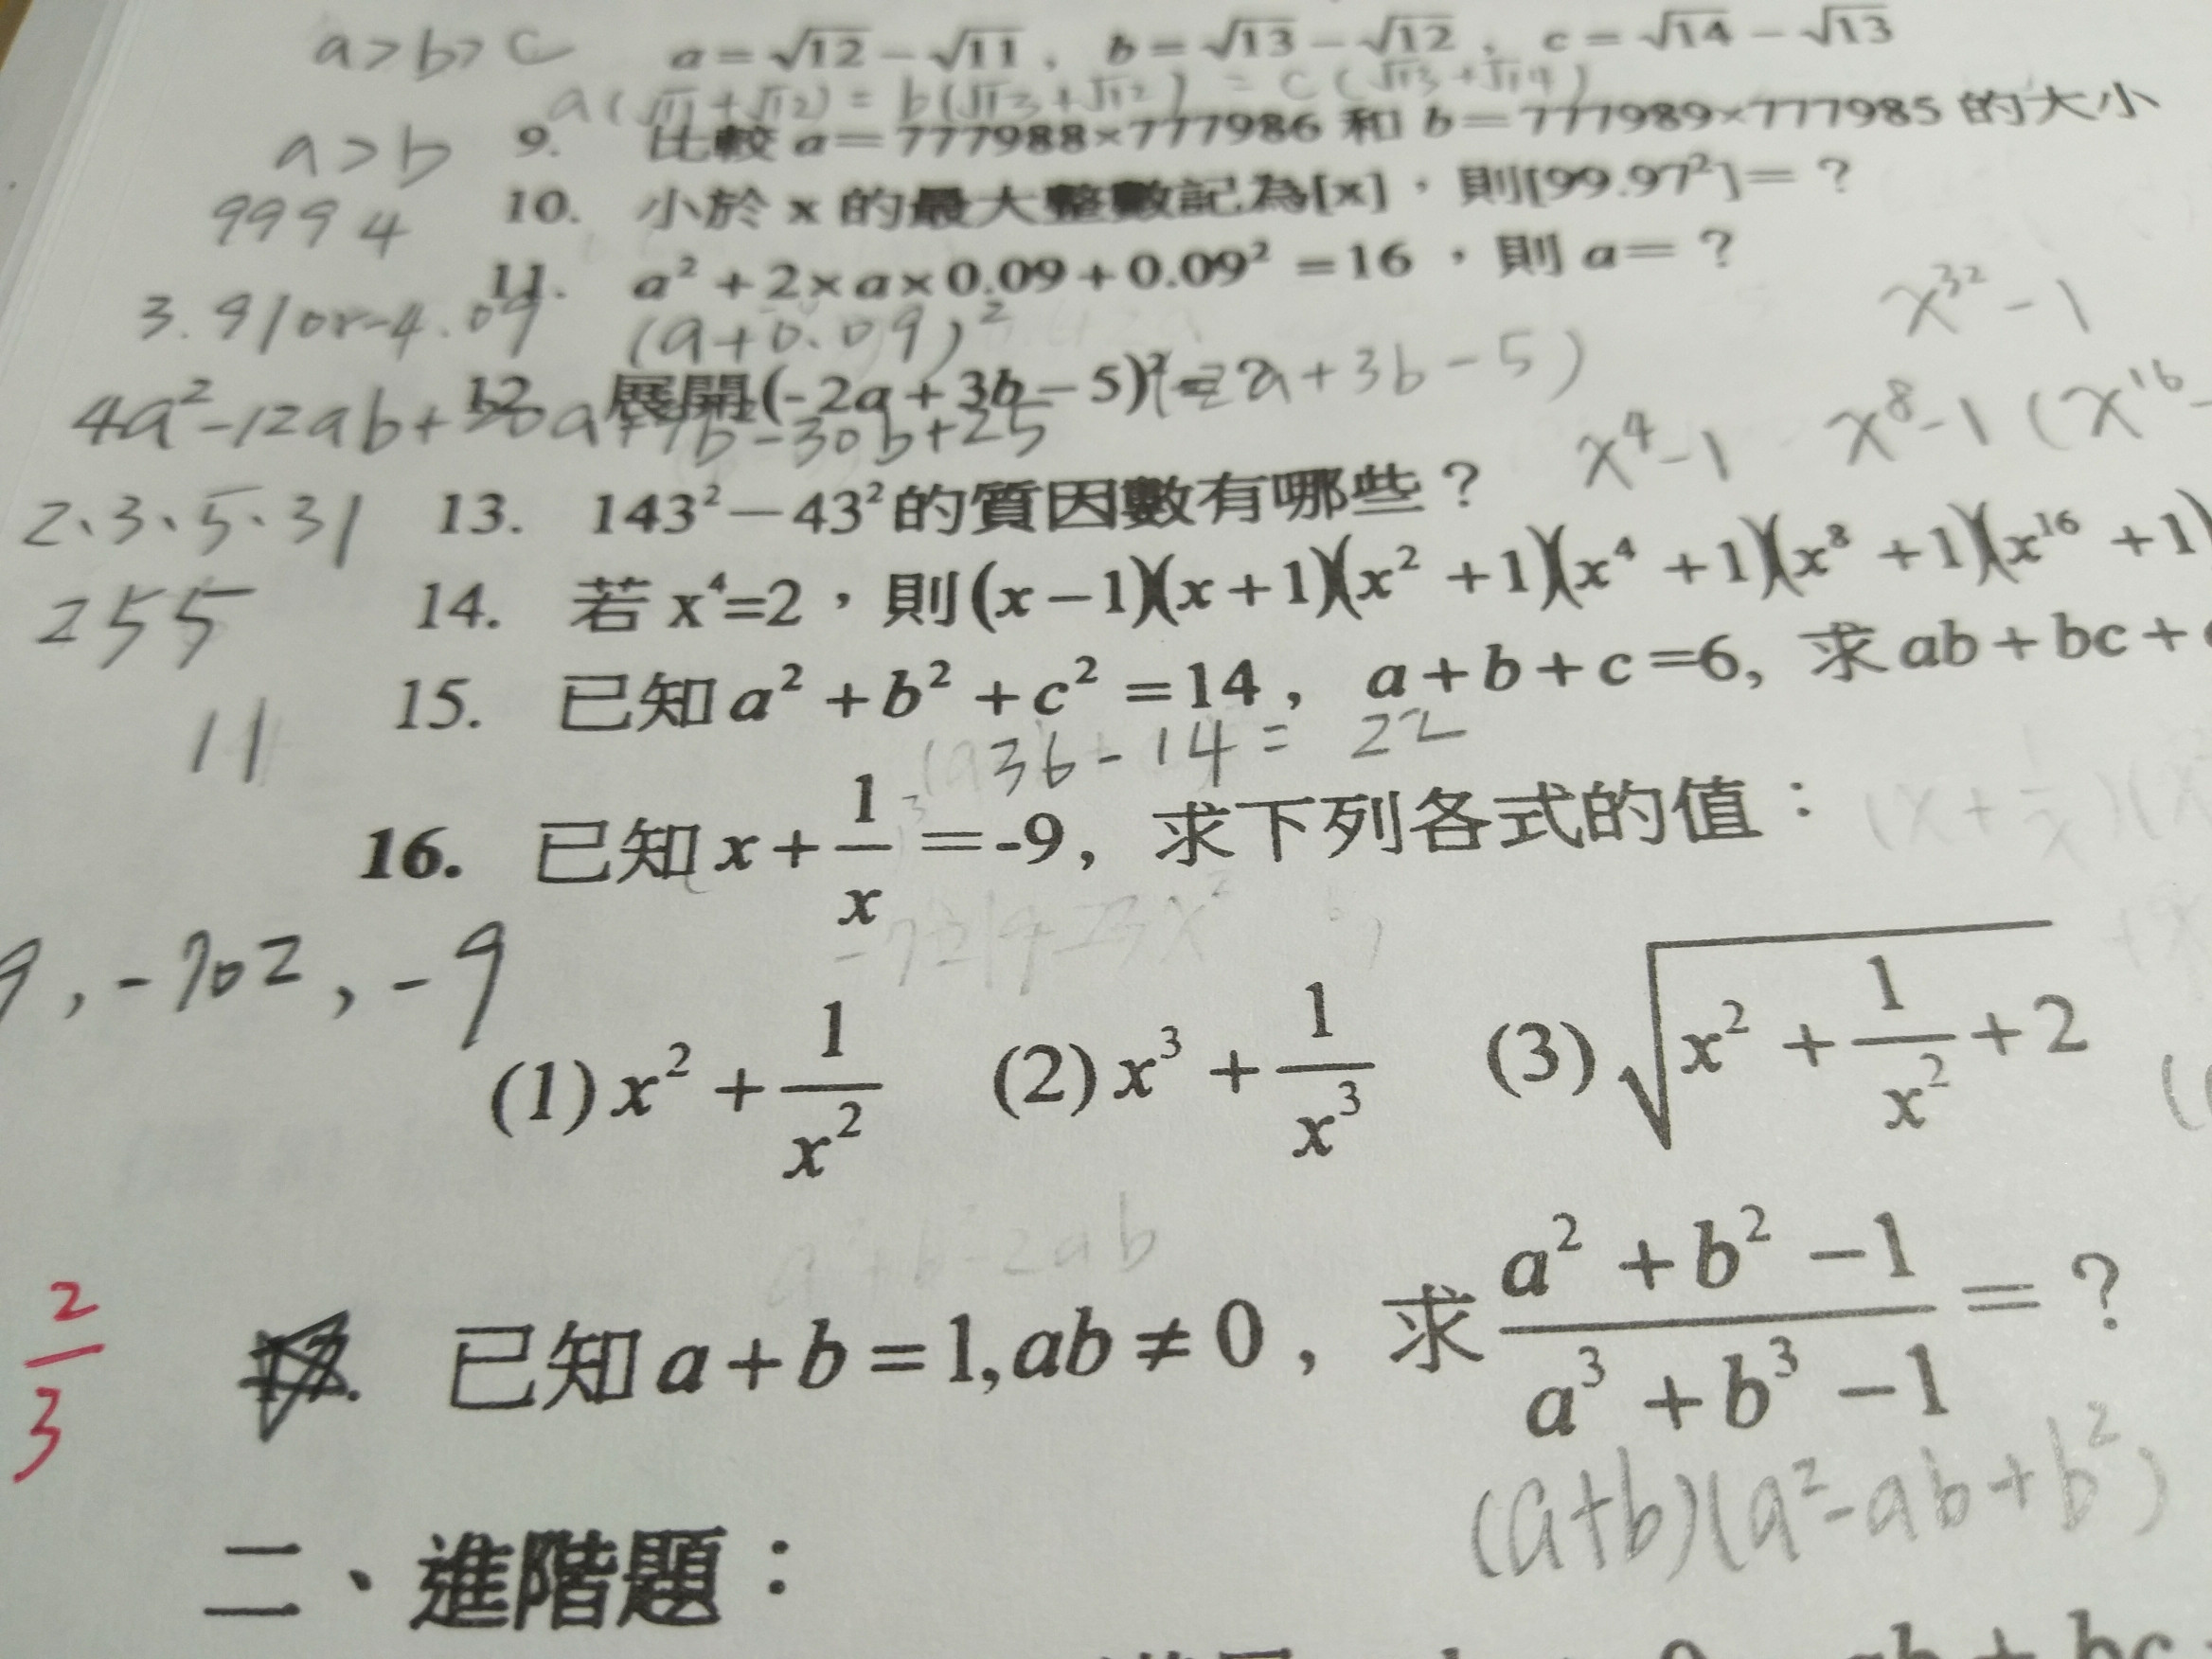 a>b>c a=√12−√11, b=√13−√12, c=√14−√13
a(√11+√12)=b(√13+√12)=c(√13+√14)
a>b 9. 比較 a=777988×777986 和 b=777989×777985 的大小
9994 10. 小於 x 的最大整數記為[x],則[99.97²]=?
3.91or-4.09 11. a²+2×a×0.09+0.09²=16,則 a=?
(a+0.09)²
12. 展開(-2a+3b−5)²= 2a+3b−5)
4a²-12ab+20a+9b-30b+25
x³²-1
x⁴-1 x⁸-1 (x¹⁶-
2、3、5、31 13. 143²−43²的質因數有哪些?
255 14. 若 x⁴=2,則(x−1)(x+1)(x²+1)(x⁴+1)(x⁸+1)(x¹⁶+1)
11 15. 已知 a²+b²+c²=14, a+b+c=6, 求 ab+bc+
36-14=22
16. 已知 x+1/x=-9, 求下列各式的值:
9, -702, -9
(1) x²+1/x² (2) x³+1/x³ (3) √(x²+1/x²+2)
a²+b²-2ab
2/3 17. 已知 a+b=1,ab≠0, 求 (a²+b²−1)/(a³+b³−1)=?
(a+b)(a²-ab+b²)
二、進階題: